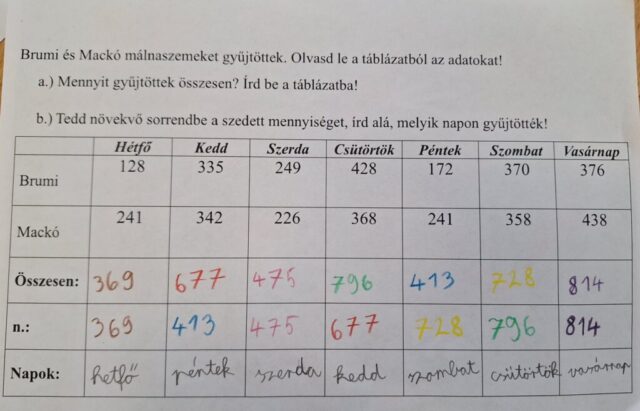 Brumi és Mackó málnaszemeket gyűjtöttek. Olvasd le a táblázatból az adatokat!
a.) Mennyit gyűjtöttek összesen? Írd be a táblázatba!
b.) Tedd növekvő sorrendbe a szedett mennyiséget, írd alá, melyik napon gyűjtötték!
Hétfő Kedd Szerda Csütörtök Péntek Szombat Vasárnap
Brumi 128 335 249 428 172 370 376
Mackó 241 342 226 368 241 358 438
Összesen: 369 677 475 796 413 728 814
n.: 369 413 475 677 728 796 814
Napok: hetfő péntek szerda kedd szombat csütörtök vasárnap